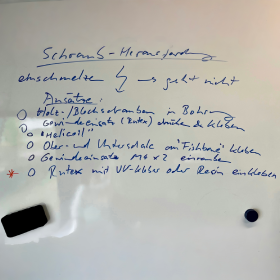 Schraub-Herausforderung
einschmelzen ↯ → geht nicht
Ansätze:
○ Holz-/Blechschrauben in Bohrung
○ Gewindeeinsatz (Rutex) kleben
○ "Helicoil"
○ Ober- und Unterschale an "Fishbone" kleben
○ Gewindeeinsatz M4x2 einrauben
* ○ Rutex mit UV-Kleber oder Resin einkleben